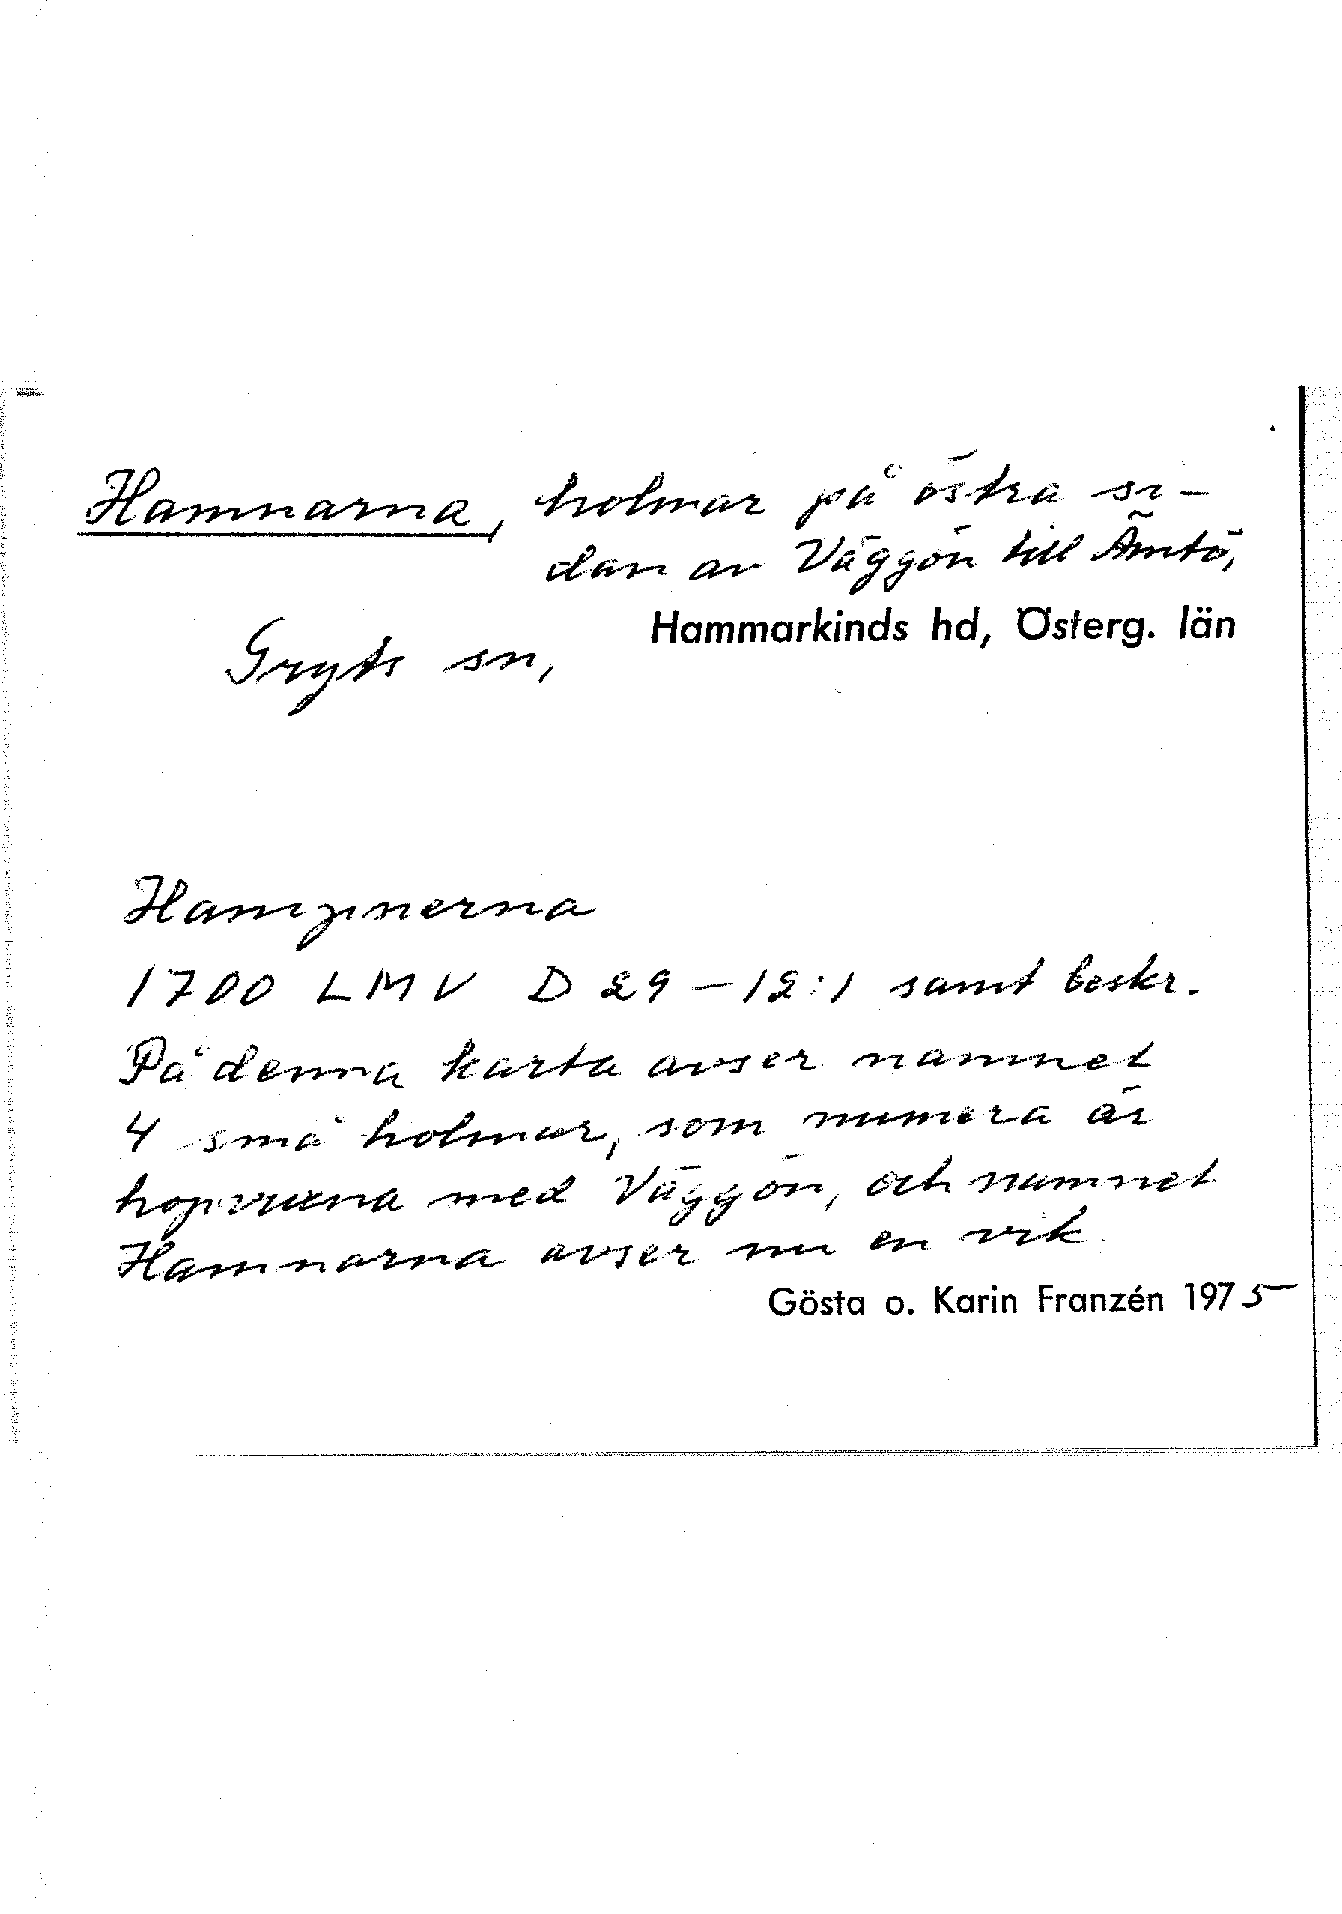 Hamnarna, holmar på östra si-
dan av Väggön till Ämtö,
Gryts sn, Hammarkinds hd, Österg. län
Hampnerna
1700 LMV D 29-12:1 samt beskr.
På denna karta avser namnet
4 små holmar, som numera är
hopvuxna med Väggön, och namnet
Hamnarna avser nu en vik.
Gösta o. Karin Franzén 1975